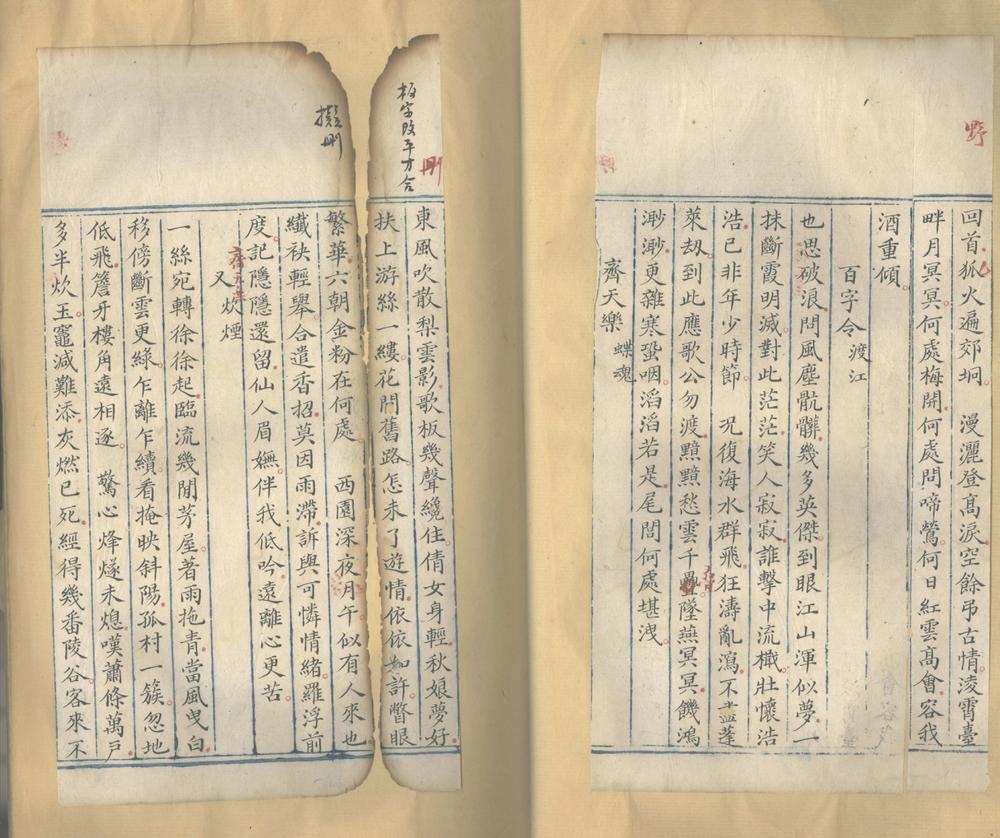 野
回首狐火遍郊坰　漫灑登高淚空餘弔古情淩霄臺
畔月冥冥何處梅開何處問啼鶯何日紅雲高會容我
酒重傾
百字令　渡江
也思破浪問風塵骯髒幾多英傑到眼江山渾似夢一
抹斷霞明滅對此茫茫笑人寂寂誰擊中流檝壯懷浩
浩已非年少時節　況復海水群飛狂濤亂瀉不盡蓬
萊刼到此應歌公勿渡黯黯愁雲千疊墜燕冥冥饑鴻
渺渺更雜寒蛩咽滔滔若是尾閭何處堪洩
齊天樂　蝶魂
刪
板字改平才合
東風吹散梨雲影歌板幾聲纔住倩女身輕秋娘夢好
扶上游絲一縷花間舊路怎未了遊情依依如許瞥眼
繁華六朝金粉在何處　西園深夜月午似有人來也
纖袂輕舉合遣香招莫因雨滯訴與可憐情緒羅浮前
度記隱隱還留仙人眉嫵伴我低吟遠離心更苦
擬刪
又　炊煙
一絲宛轉徐徐起臨流幾閒芳屋著雨拖青當風曳白
移傍斷雲更綠乍離乍續看掩映斜陽孤村一簇忽地
低飛簷牙樓角遠相逐　驚心烽燧未熄嘆蕭條萬戶
多半炊玉竈減難添灰燃已死經得幾番陵谷客來不